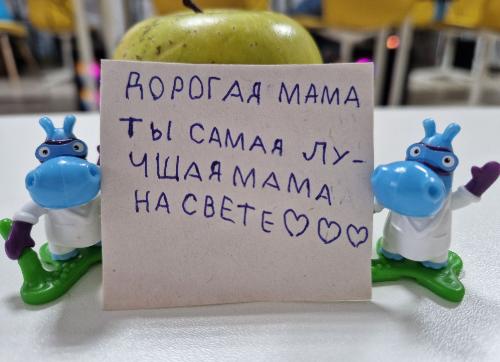 ДОРОГАЯ МАМА
ТЫ САМАЯ ЛУ-
ЧШАЯ МАМА
НА СВЕТЕ♡♡♡